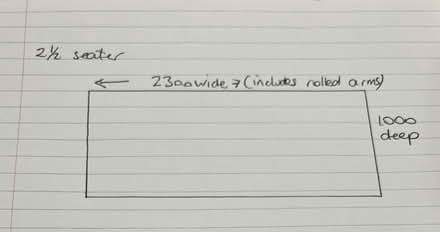 2½ seater
← 2300 wide → (includes rolled arms)
1000
deep